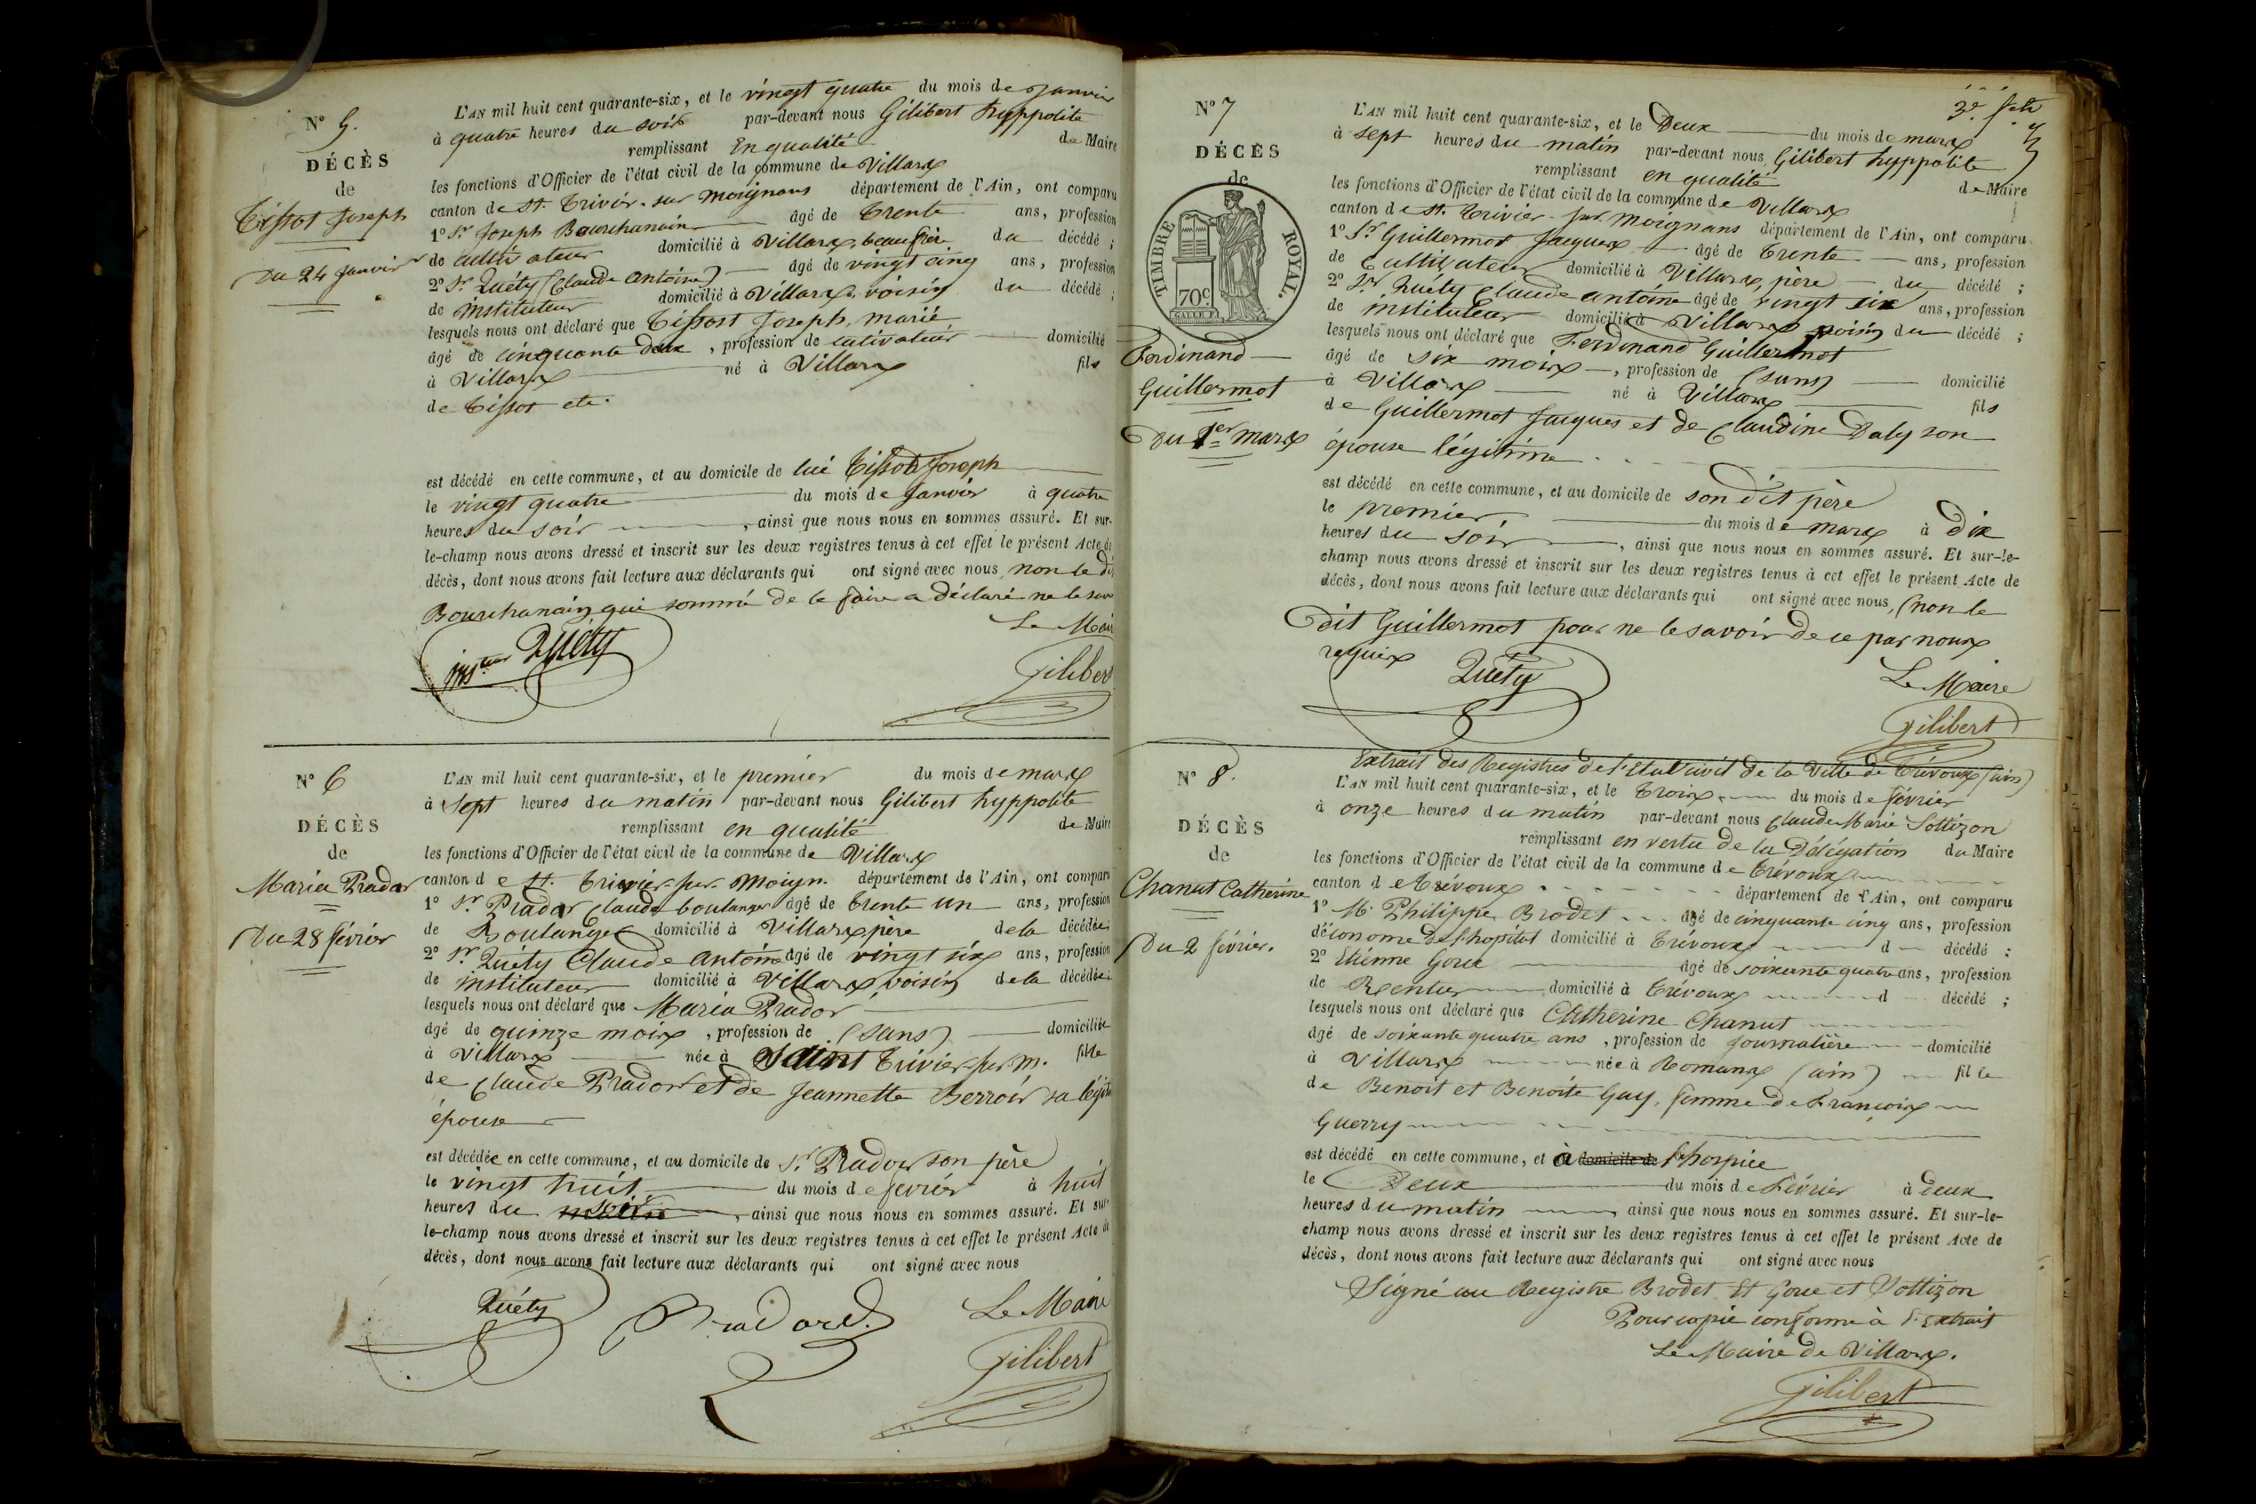 N° 5.
DÉCÈS
de
Tissot Joseph
Du 24 Janvier
L'AN mil huit cent quarante-six, et le vingt quatre du mois de Janvier
à quatre heures du soir par-devant nous Gilibert hyppolite
remplissant En qualité de Maire
les fonctions d'Officier de l'état civil de la commune de Villars
canton de St. Trivier-sur moignans département de l'Ain, ont comparu
1° Sr Joseph Bourchanain âgé de Trente ans, profession
de cultivateur domicilié à Villars, beaufrère du décédé;
2° Sr Quéty (Claude Antoine) âgé de vingt cinq ans, profession
de instituteur domicilié à Villars, voisin du décédé;
lesquels nous ont déclaré que Tissost Joseph, marié
âgé de cinquante deux, profession de cultivateur domicilié
à Villars né à Villars fils
de Tissot etc.
est décédé en cette commune, et au domicile de lui Tissot Joseph
le vingt quatre du mois de Janvier à quatre
heures du soir, ainsi que nous nous en sommes assuré. Et sur-
le-champ nous avons dressé et inscrit sur les deux registres tenus à cet effet le présent Acte de
décès, dont nous avons fait lecture aux déclarants qui ont signé avec nous, non le dit
Bourchanain qui sommé de le faire a déclaré ne le savoir
Le Maire
insteur Quéty
Gilibert
N° 6
DÉCÈS
de
Maria Prador
Du 28 février
L'AN mil huit cent quarante-six, et le premier du mois de mars
à Sept heures du matin par-devant nous Gilibert hyppolite
remplissant en qualité de Maire
les fonctions d'Officier de l'état civil de la commune de Villars
canton de St. Trivier-sur-Moign. département de l'Ain, ont comparu
1° Sr Prador Claude boulanger âgé de trente un ans, profession
de Boulanger domicilié à Villars père de la décédée;
2° Sr Quéty Claude Antoine âgé de vingt six ans, profession
de instituteur domicilié à Villars voisin de la décédée;
lesquels nous ont déclaré que Maria Prador
âgé de quinze mois, profession de (sans) domiciliée
à Villars née à Saint Trivier-sur M. fille
de Claude Prador et de Jeannette Berroir sa légit.
épouse
est décédée en cette commune, et au domicile de Sr. Prador son père
le vingt huit du mois de fevrier à huit
heures du soir, ainsi que nous nous en sommes assuré. Et sur-
le-champ nous avons dressé et inscrit sur les deux registres tenus à cet effet le présent Acte de
décès, dont nous avons fait lecture aux déclarants qui ont signé avec nous
Quéty Pradord. Le Maire
Gilibert
3e. f
N° 7
DÉCÈS
de
TIMBRE ROYAL.
70c.
Ferdinand
Guillermot
Du 1er mars
L'AN mil huit cent quarante-six, et le Deux du mois de mars
à sept heures du matin par-devant nous Gilibert hyppolite
remplissant en qualité de Maire
les fonctions d'Officier de l'état civil de la commune de Villars
canton de St. Trivier-sur Moignans département de l'Ain, ont comparu
1° Sr Guillermot Jacques âgé de Trente ans, profession
de Cultivateur domicilié à Villars, père du décédé;
2° Sr Quéty Claude Antoine âgé de vingt six ans, profession
de instituteur domicilié à Villars voisin du décédé;
lesquels nous ont déclaré que Ferdinand Guillermot
âgé de six mois, profession de (sans) domicilié
à Villars né à Villars fils
de Guillermot Jacques et de Claudine Daly son
épouse légitime
est décédé en cette commune, et au domicile de son dit père
le premier du mois de mars à dix
heures du soir, ainsi que nous nous en sommes assuré. Et sur-le-
champ nous avons dressé et inscrit sur les deux registres tenus à cet effet le présent Acte de
décès, dont nous avons fait lecture aux déclarants qui ont signé avec nous, (non le
dit Guillermot pour ne le savoir de ce par nous
requis Quéty
Le Maire
Gilibert
N° 8.
DÉCÈS
de
Chanut Catherine
Du 2 février.
Extrait des Registres de l'Etat Civil de la Ville de Trévoux (ain)
L'AN mil huit cent quarante-six, et le Trois du mois de février
à onze heures du matin par-devant nous Claude Marie Sottizon
remplissant en vertu de la Délégation du Maire
les fonctions d'Officier de l'état civil de la commune de Trévoux
canton de Trévoux département de l'Ain, ont comparu
1° M. Philippe Brodet âgé de cinquante cinq ans, profession
d'économe de l'hopital domicilié à Trévoux d décédé;
2° Etienne Goux âgé de soixante quatre ans, profession
de Rentier domicilié à Trévoux d décédé;
lesquels nous ont déclaré que Catherine Chanut
âgé de soixante quatre ans, profession de journalière domicilié
à Villars née à Romans (ain) fille
de Benoit et Benoite Guy, femme de François
Guerry
est décédé en cette commune, et à domicile de l'hospice
le Deux du mois de Février à deux
heures du matin, ainsi que nous nous en sommes assuré. Et sur-le-
champ nous avons dressé et inscrit sur les deux registres tenus à cet effet le présent Acte de
décès, dont nous avons fait lecture aux déclarants qui ont signé avec nous
Signé au Registre Brodet, Et Goux et Sottizon
Pour copie conforme à l'Extrait
Le Maire de Villars.
Gilibert